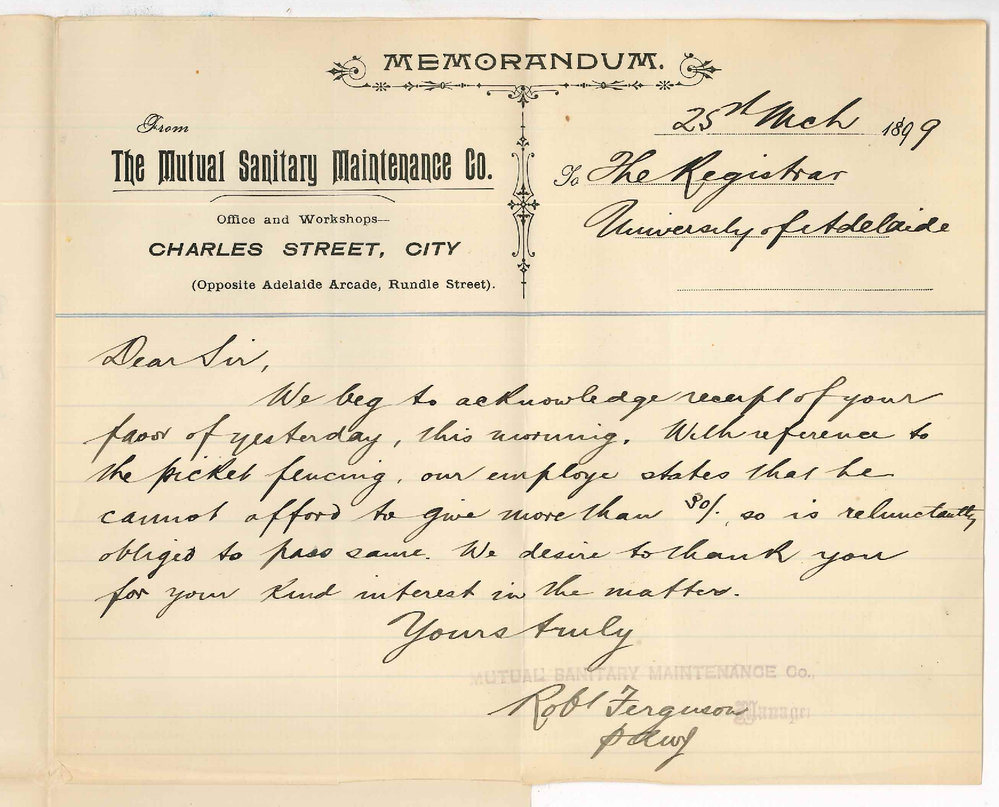 MEMORANDUM.
25th Mch 1899
From
The Mutual Sanitary Maintenance Co.
Office and Workshops—
CHARLES STREET, CITY
(Opposite Adelaide Arcade, Rundle Street).
To The Registrar
University of Adelaide
Dear Sir,
We beg to acknowledge receipt of your
favor of yesterday, this morning. With reference to
the picket fencing, our employe states that he
cannot afford to give more than 30/. so is relunctantly
obliged to pass same. We desire to thank you
for your kind interest in the matter.
Yours truly
MUTUAL SANITARY MAINTENANCE Co.,
Robt Ferguson Manager